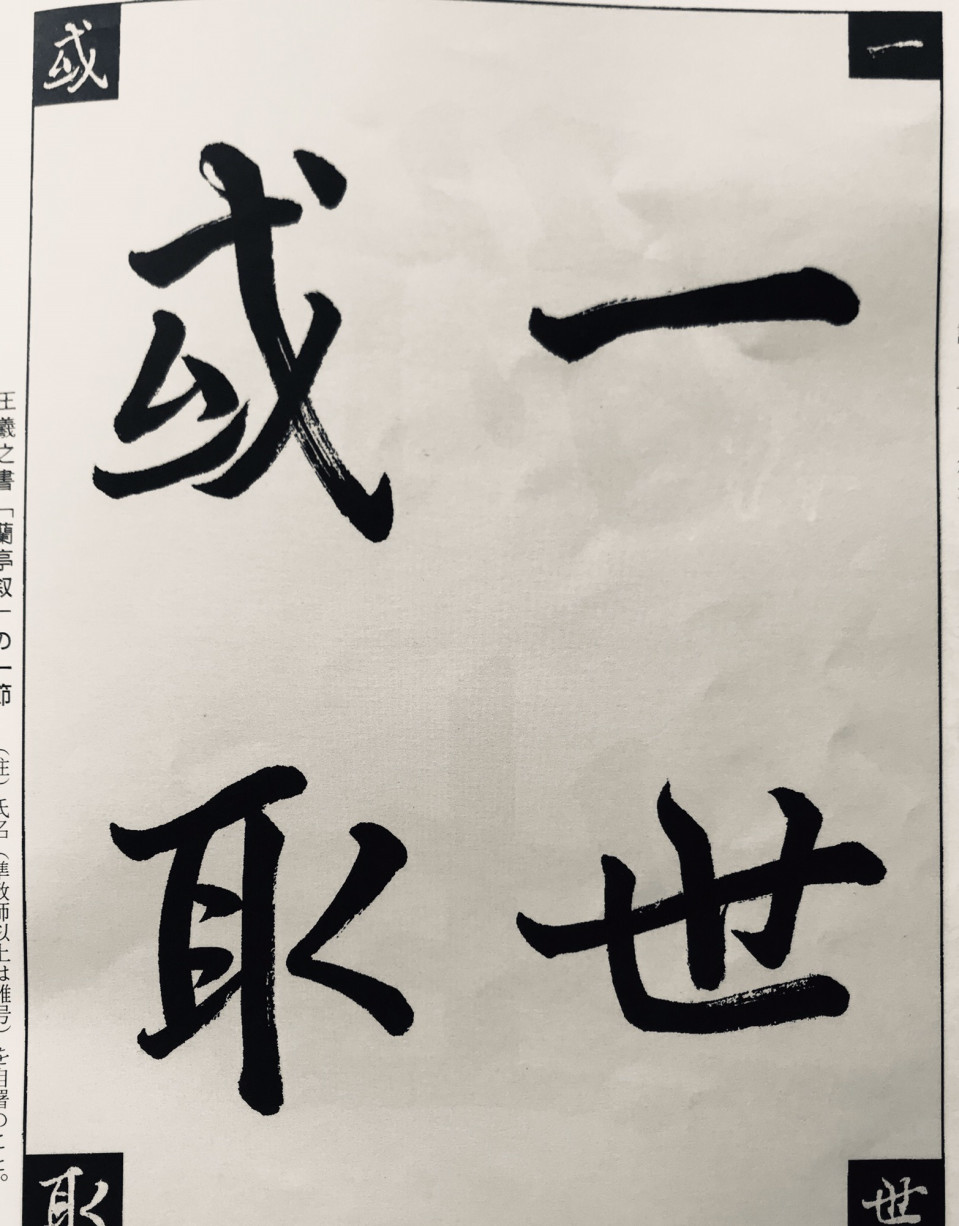 一世
或取
一
世
或
取
王羲之書「蘭亭叙」の一節 (註)氏名(準教師以上は雅号)を自署のこと。